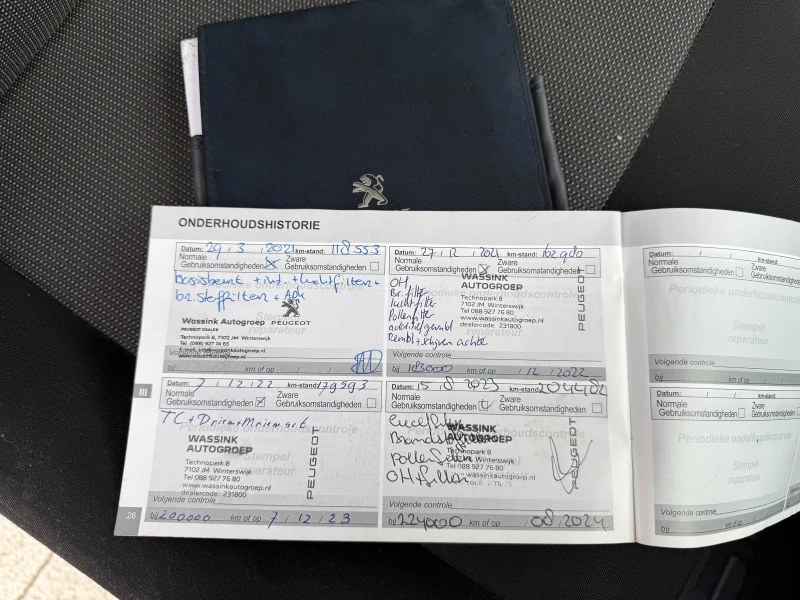 ONDERHOUDSHISTORIE
Datum: 29 / 3 / 2021 km-stand: 118553
Normale Gebruiksomstandigheden Zware Gebruiksomstandigheden
basisbeurt + int. + luchtfilter +
br.stoffilter + APK
Wassink Autogroep PEUGEOT
PEUGEOT DEALER
Technopark 8, 7102 JM Winterswijk
Tel (088) 927 74 65
E-mail: info@wassinkautogroep.nl
www.wassinkautogroep.nl
Volgende controle
bij km of op / /
27 / 12 / 2021 km-stand:
Normale Gebruiksomstandigheden Zware Gebruiksomstandigheden
OH
Br.filter
luchtfilter
Pollenfilter
Rembl + schijven achter
WASSINK
AUTOGROEP
Technopark 8
7102 JM Winterswijk
Tel 088 927 76 80
www.wassinkautogroep.nl
dealercode: 231800
PEUGEOT
Volgende controle
bij 183000 km of op / 12 / 2022
III
7 / 12 / 22 km-stand: 179593
Normale Gebruiksomstandigheden Zware Gebruiksomstandigheden
WASSINK
AUTOGROEP
Technopark 8
7102 JM Winterswijk
Tel 088 927 76 80
www.wassinkautogroep.nl
dealercode: 231800
PEUGEOT
Stempel reparateur
Volgende controle
bij 200000 km of op 7 / 12 / 23
Datum: 15 / 8 / 2023 km-stand: 204482
Normale Gebruiksomstandigheden Zware Gebruiksomstandigheden
Brandstoffilter
Pollenfilter
WASSINK
AUTOGROEP
Technopark 8
7102 JM Winterswijk
Tel 088 927 76 80
www.wassinkautogroep.nl
PEUGEOT
Volgende controle
bij 2240000 km of op / 08 / 2024
26
Datum: / / km-stand:
Normale Gebruiksomstandigheden Zware
Periodieke onderhoudscontrole
Stempel
reparateur
Volgende controle
bij km of op
Datum: / / km-stand:
Normale Gebruiksomstandigheden Zware
Periodieke onderhoudscontrole
Stempel
reparateur
Volgende controle
bij km of op